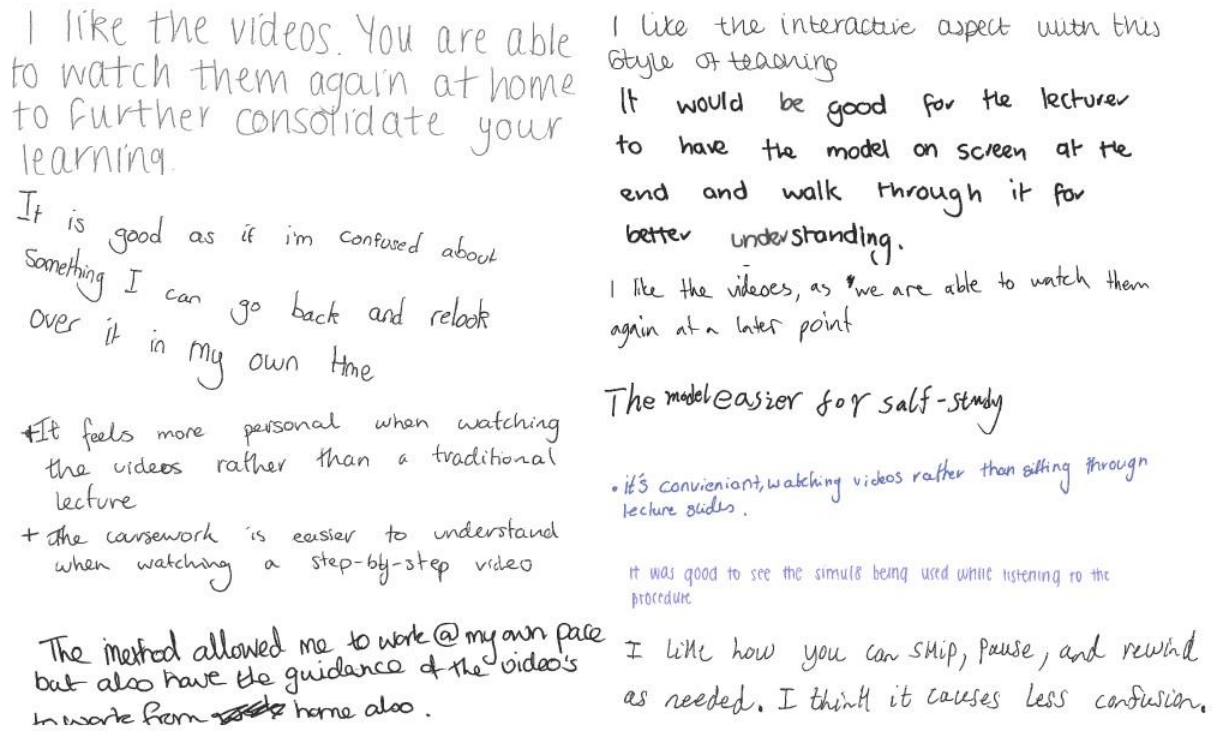 I like the videos. You are able
to watch them again at home
to further consolidate your
learning.
It is good as if i'm confused about
something I can go back and relook
over it in my own time
+It feels more personal when watching
the videos rather than a traditional
lecture
+ the coursework is easier to understand
when watching a step-by-step video
The method allowed me to work @ my own pace
but also have the guidance of the video's
to work from home also.
I like the interactive aspect with this
style of teaching
It would be good for the lecturer
to have the model on screen at the
end and walk through it for
better understanding.
I like the videoes, as we are able to watch them
again at a later point
The model easier for salf-study
• it's convieniant, watching videos rather than sitting through
lecture slides.
it was good to see the simul8 being used while listening to the
procedure
I like how you can skip, pause, and rewind
as needed. I think it causes less confusion.